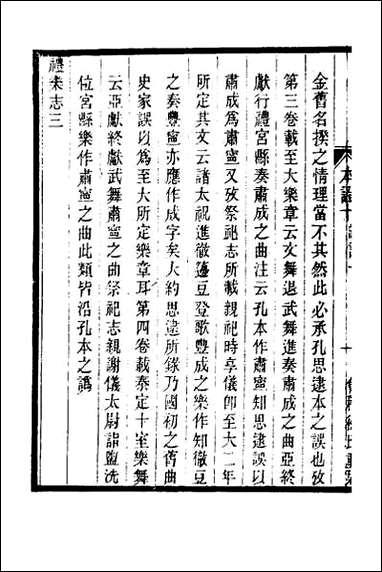 金舊名揆之情理當不其然此必承孔思逮本之誤也攷
第三卷載至大樂章云文舞退武舞進奏肅成之曲亞終
獻行禮宮縣奏肅成之曲注云孔本作肅寧知思逮誤以
肅成為肅寧又攷祭祀志所載親祀時享儀卽至大二年
所定其文云諸太祝進徹籩豆登歌豐成之樂作知徹豆
之奏豐寧亦應作成字矣大約思逮所錄乃國初之舊曲
史家誤以為至大所定樂章耳第四卷載奏定十室樂舞
云亞獻終獻武舞肅寧之曲祭祀志親謝儀太尉詣盥洗
位宮縣樂作肅寧之曲此類皆沿孔本之譌
禮樂志三